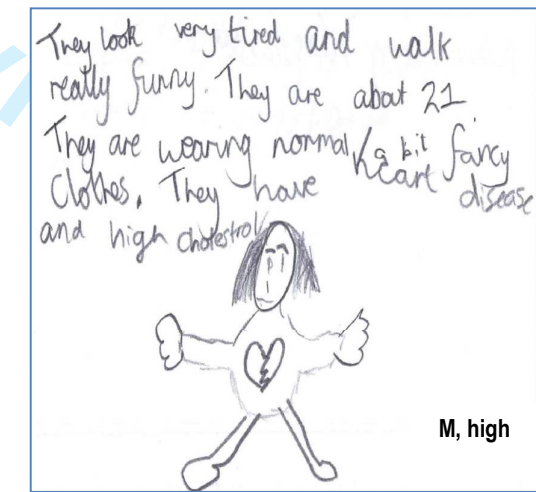 They look very tired and walk
really funny. They are about 21
They are wearing normal/a bit fancy
Clothes. They have heart disease
and high cholestrol
M, high